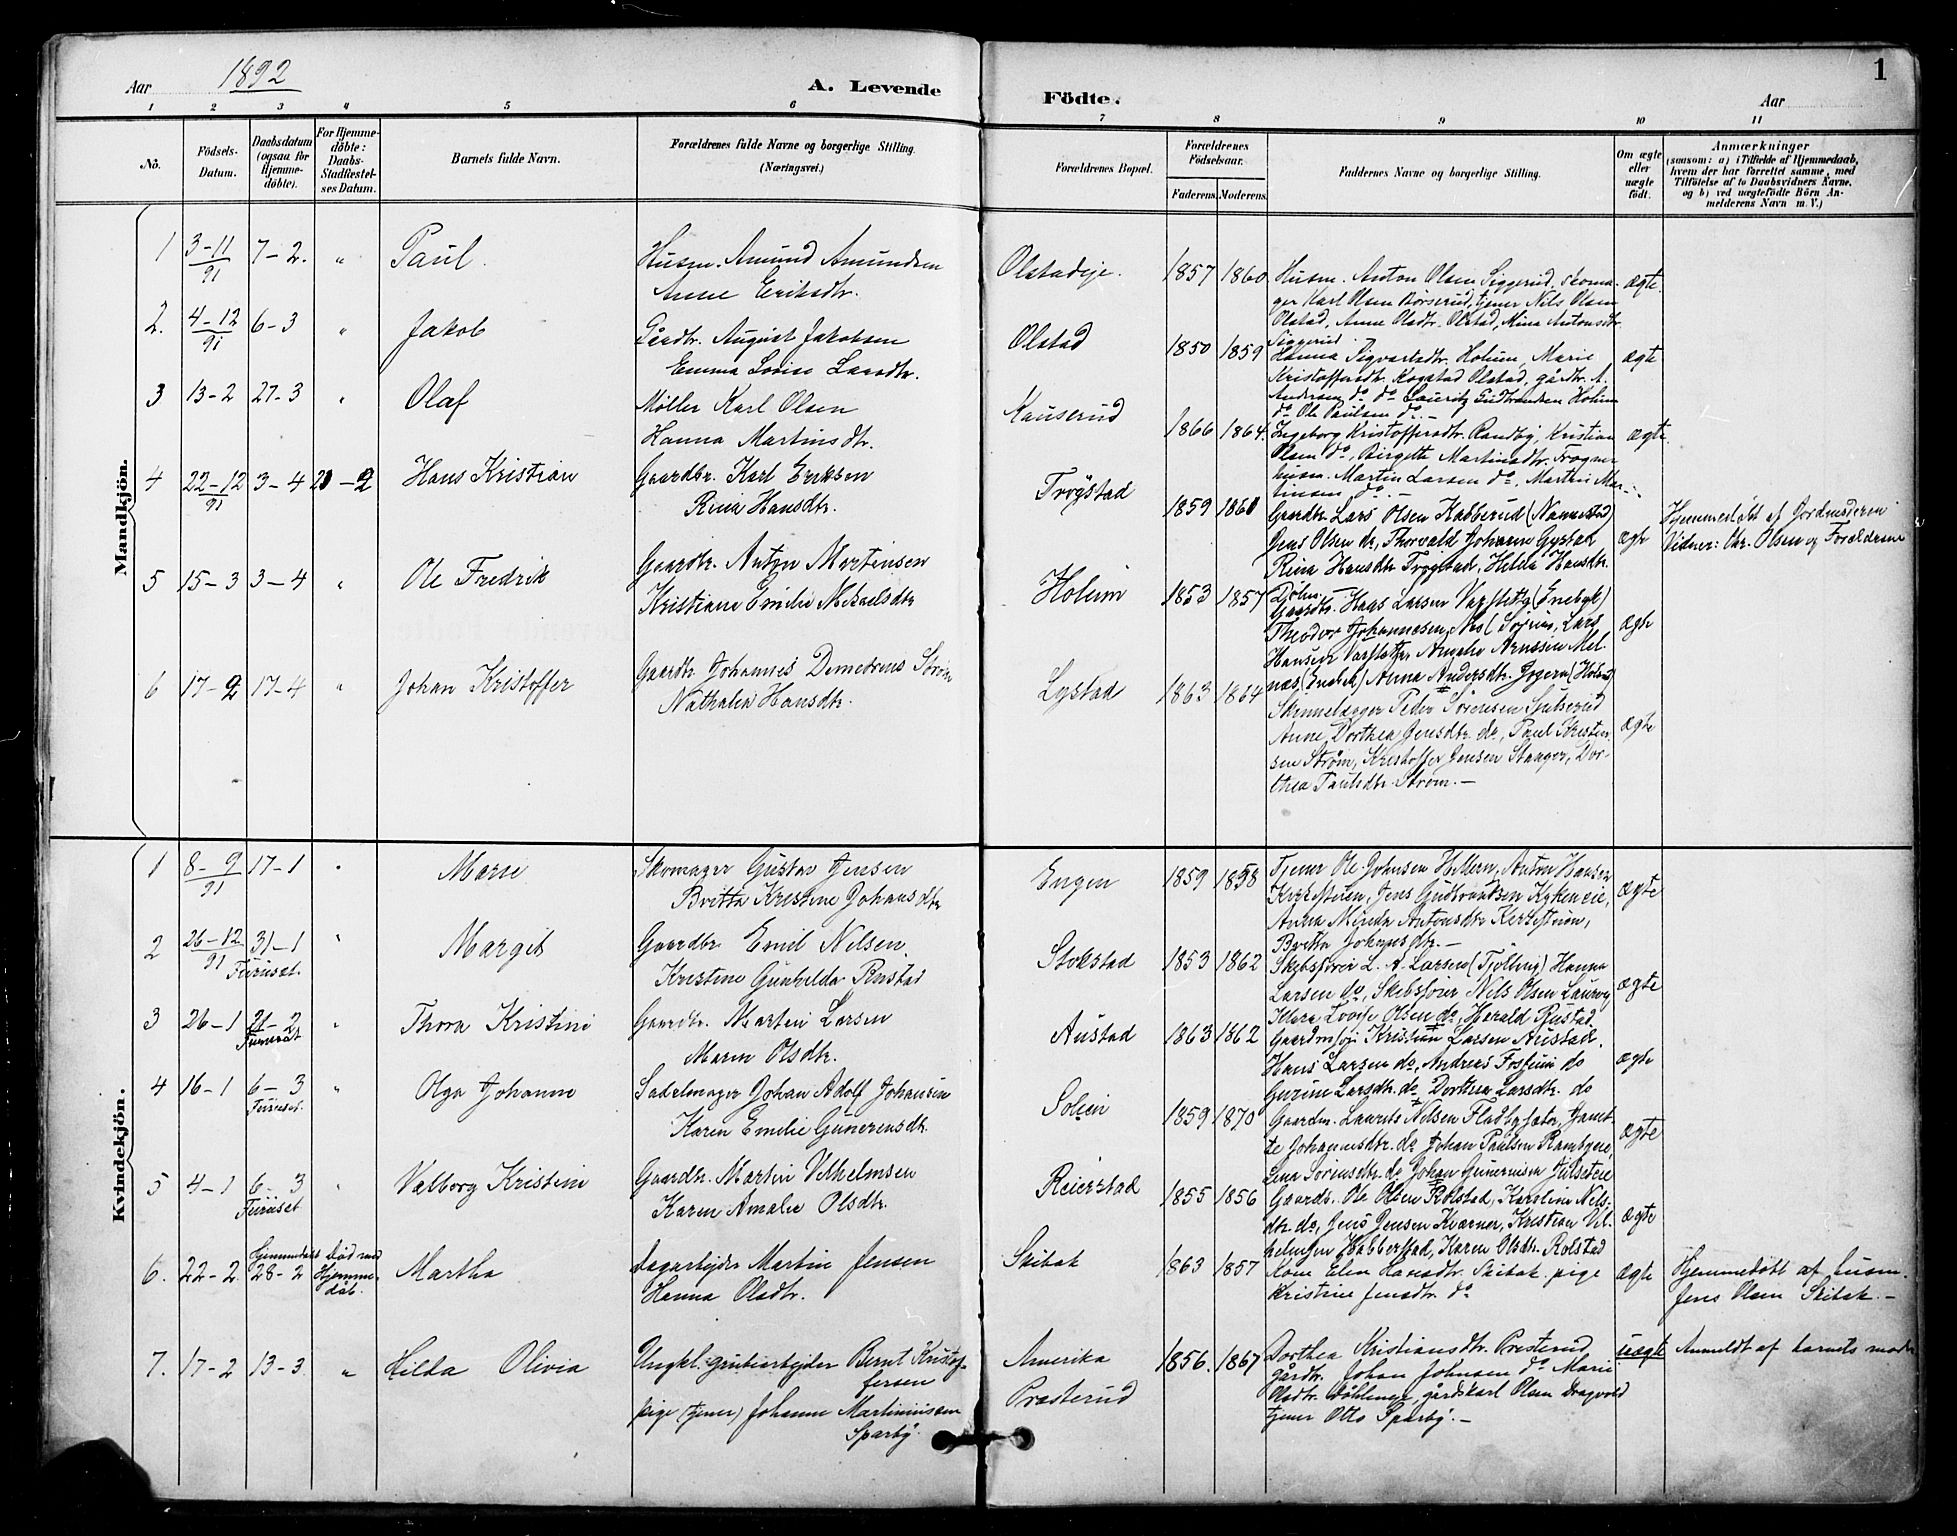 Aar 1892
A. Levende
Födte.
Aar
1
1 2 3 4 5 6 7 8 9 10 11
Nö.
Födsels-
Datum.
Daabsdatum
(ogsaa for
Hjemme-
döbte).
For Hjemme-
döbte:
Daabs-
Stadfæstel-
ses Datum.
Barnets fulde Navn.
Forældrenes fulde Navne og borgerlige Stilling.
(Næringsvei.)
Forældrenes Bopæl.
Forældrenes
Födselsaar.
Faderens. Moderens.
Faddernes Navne og borgerlige Stilling.
Om ægte
eller
uægte
födt.
Anmærkninger
(saasom: a) i Tilfælde af Hjemmedaab,
hvem der har forrettet samme, med
Tilföielse af to Daabsvidners Navne,
og b) ved uægtefödte Börn An-
melderens Navn m. V.)
Mandkjön.
1 3-11/91 7-2. " Paul.
Husm. Amund Amundsen
Anne Eriksdtr.
Olstadeje. 1857 1860
Husm. Anton Olsen Siggerud, skoma-
ger Karl Olsen Børserud, tjener Nils Olsen
Olstad, Anne Olsdtr. Olstad, Mina Antonsdtr.
Siggerud.
ægte.
2. 4-12/91 6-3 " Jakob
Gårdbr. August Jakobsen
Emma Lovise Larsdtr.
Olstad 1850 1859
Hanna Sigvartsdtr. Holum, Marie
Kristoffersdtr. Kogstad Olstad, gårdbr. A.
Andersen do do Lauritz Gudbrandsen Holum
do Ole Paulsen do.-
ægte
3 13-2 27-3 " Olaf
Møller Karl Olsen
Hanna Martinsdtr.
Kauserud 1866 1864.
Ingeborg Kristoffersdtr. Randby, Kristian
Olsen do, Birgitte Martinsdtr. Frogner
husm. Martin Larsen do, Martin Mar-
tinsen do.-
ægte
4 22-12/91 3-4 21-2 Hans Kristian
Gaardbr. Karl Eriksen
Rina Hansdtr.
Trøgstad 1859 1861
Gaardbr. Lars Olsen Kabberud (Nannestad)
Jens Olsen do, Thorvald Johansen Gystad
Rina Hansdtr Trøgstad, Helda Hansdtr.
ægte
Hjemmedøbt af Jordmoderen
Vidner: Chr. Olsen og Forældrene
5 15-3 3-4 " Ole Fredrik
Gaardbr. Anton Martinsen
Kristiane Emilie Mikaelsdtr
Holum 1853 1857
Gaardbr. Hans Larsen Vagstetty (Enebyk)
Theodor Johannesen Nes (Sørum, Lars
Hansen Anna Andersdtr. (Holand)
ægte
6 17-2 17-4 " Johan Kristoffer
Gaardbr Johannes Strøm
Nathalia Hansdtr.
Lystad 1863 1864
Skinnelægger Peder Sørensen
Anne Dorthea Jensdtr do, Paul Kristen
sen Strøm, Kristoffer Jensen Stanger, Dor-
thea Paulsdtr. Strøm.-
ægte
Kvindekjön.
1 8-9/91 17-1 " Marie
Skomager Gustav Jensen
Britta Kristine Johansdtr
Engen 1859 1858
Tjener Ole Johnsen Hellern, Anton Hansen
Jens Gudbrandsen Kykeneie,
Anna Minda Antonsdtr
Britha Johansdtr.-
ægte
2 26-12/91 31-1 Furuset. " Margit
Gaardbr Emil Nilsen
Kristine Gunhilda Rustad
Stokstad 1853 1862
Skibsfører L. A. Larsen (Tjølling) Hanna
Larsen do, Skibsfører Nils Olsen Laurvig
Mara Lovise Olsen do, Harald Rustad.
ægte
3 26-1 21-2 Furuset " Thora Kristine
Gaardbr. Martin Larsen
Maren Olsdtr.
Austad 1863 1862
Kristian Larsen Austad.
Hans Larsen do, Andreas Fossum do
Gurine Larsdtr. do Dorthea Larsdtr. do
ægte
4 16-1 6-3 Furuset. " Olga Johanne
Sadelmager Johan Adolf Johansen
Karen Emilie Gunerensdtr.
Solein 1859 1870
Gaardm. Laurits Nilsen Fladbysæter, Janet-
te Johannesdtr. do Johan Paulsen Rambyeie,
Lina Sørensdtr. do Johan Gunerensen Julseteie
ægte
5 4-1 6-3 Furuset " Valborg Kristine
Gaardbr. Martin Vilhelmsen
Karen Amalie Olsdtr.
Reierstad 1855 1856
Gaardbr. Ole Olsen Rolstad, Karoline Nils-
dtr. do, Jens Jensen Kverner, Kristian Vil-
helmsen Habberstad, Karen Olsdtr. Rolstad
ægte
6. 22-2 Hjemmedøbt 28-2 Død med Hjemme-
dåb. Martha
Dagarbejder Martin Jensen
Hanna Olsdtr.
Skibak 1863 1857
Kone Elen Hansdtr. Skibak pige
Kristine Jensdtr. do
ægte
Hjemmedøbt af husm.
Jens Olsen Skibak.-
7. 17-2 13-3 " Hilda Olivia
Ungkl. grubearbejder Bernt Kristof-
fersen
pige (tjener) Johanne Martiniusen
Sparby.
Amerika
Præsterud
1856. 1867
Dorthea Kristiansdtr. Præsterud
gårdbr. Johan Johnsen do Marie
Olsdtr. Døhlenge, gårdskarl Olsen Dragvold
tjener Otto Sparby.-
uægte
Anmeldt af barnets moder